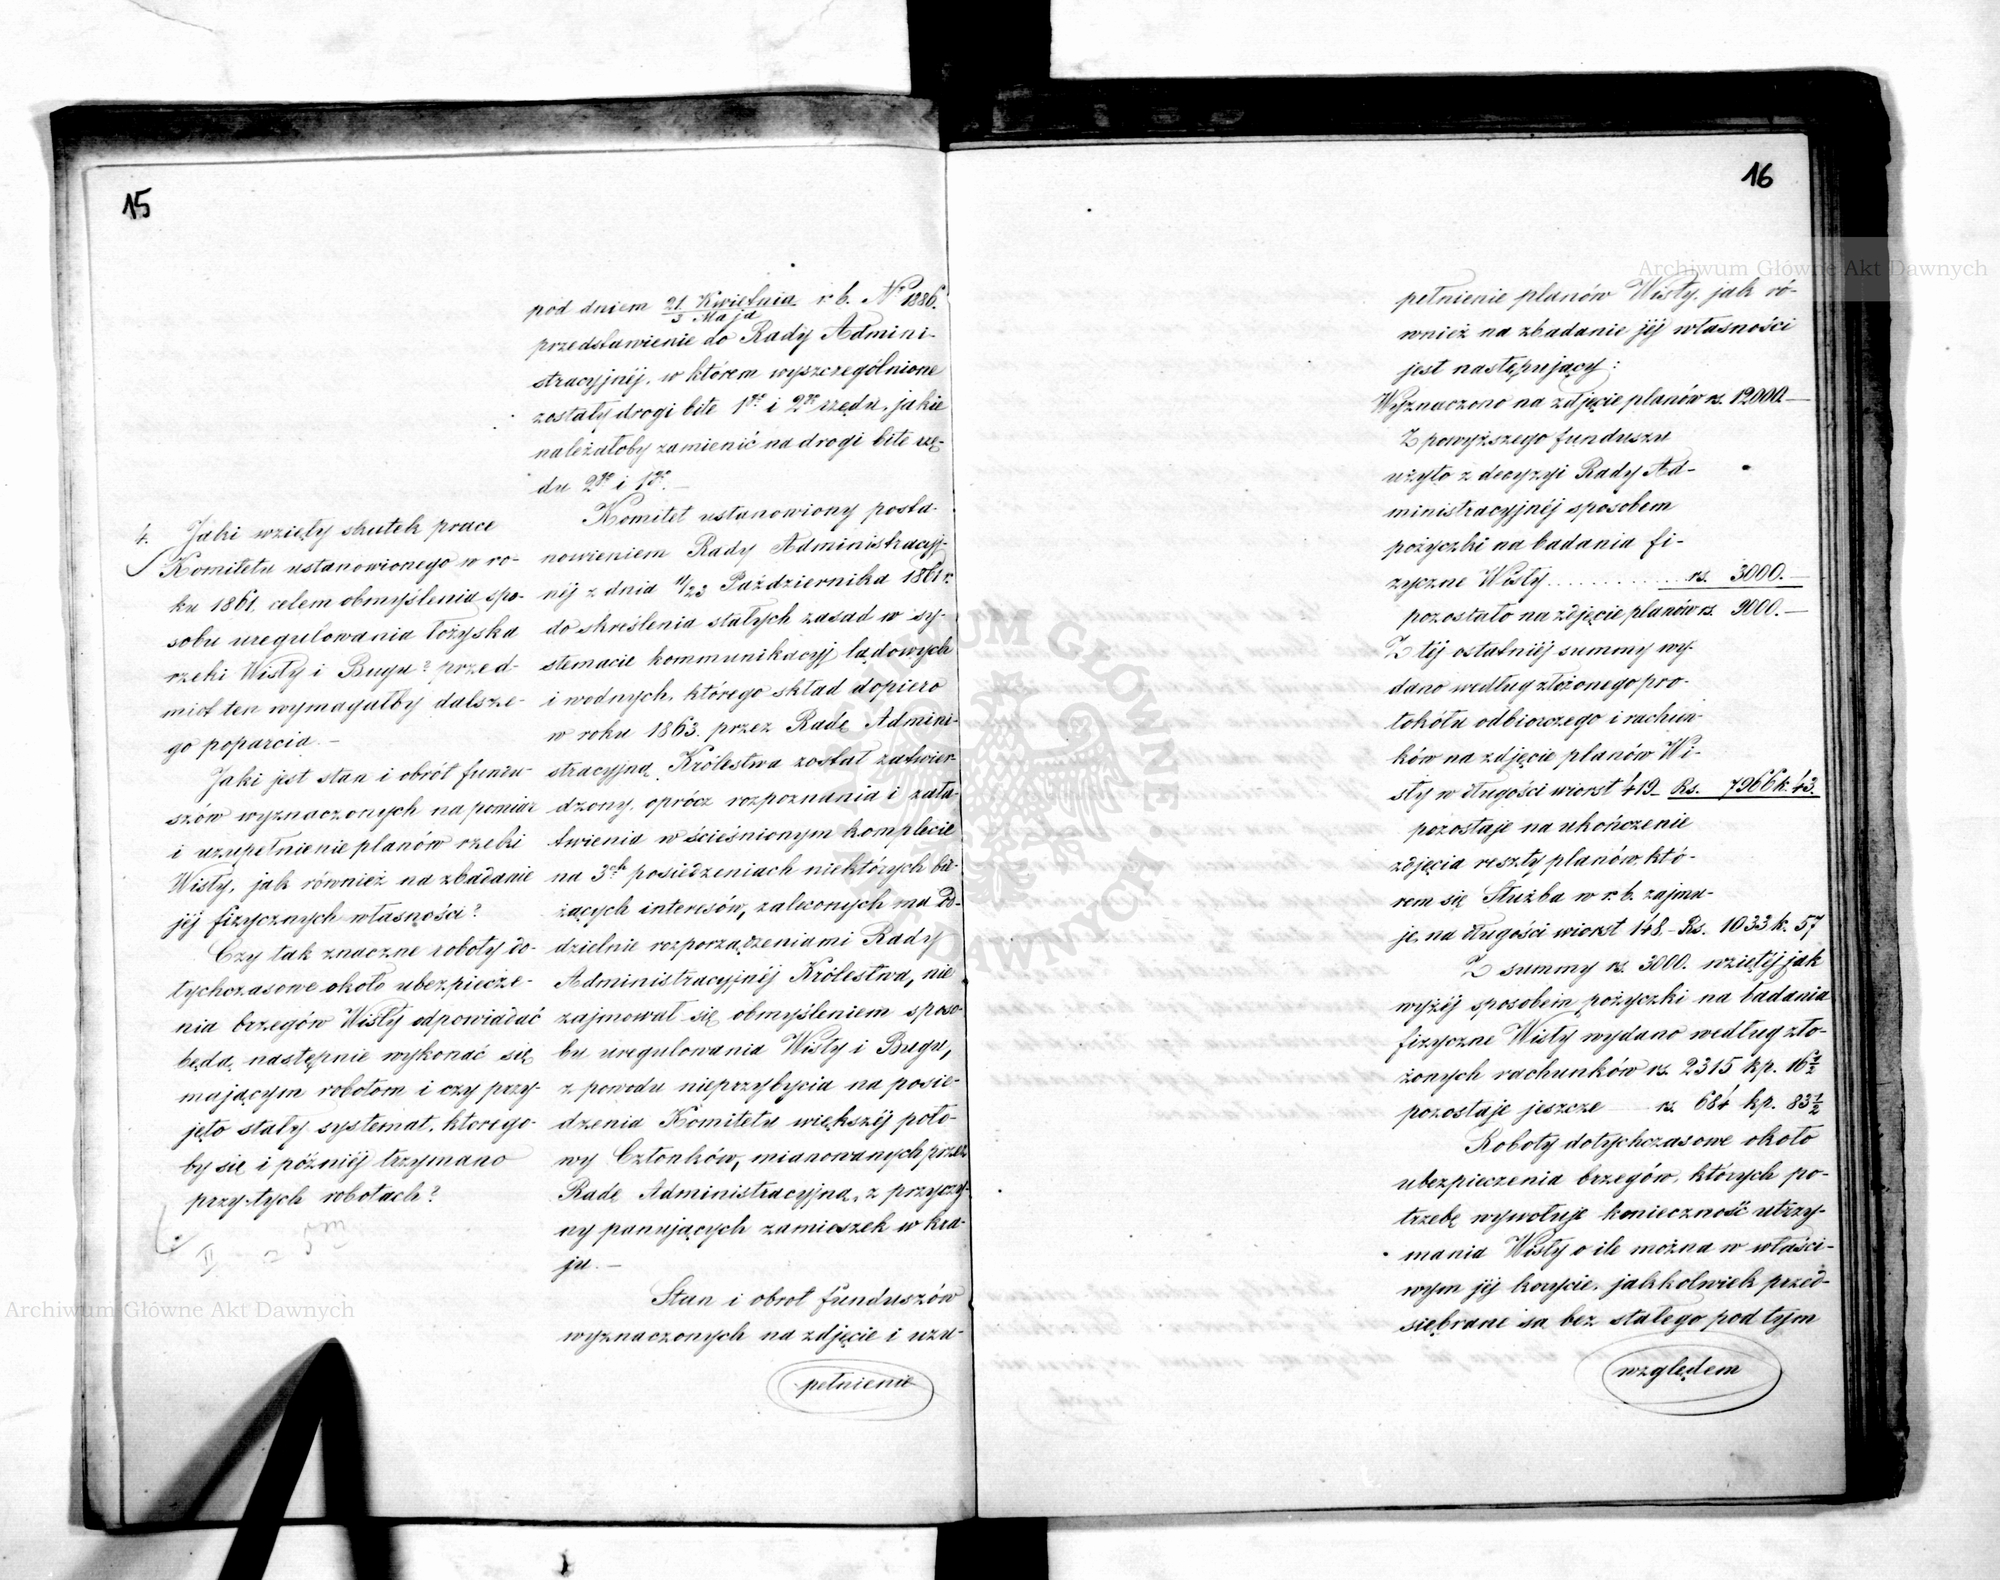 15
pod dniem 21 Kwietnia / 3 Maja r. b. Nr 1886.
przedstawienie do Rady Admini-
stracyjnéj, w którem wyszczególnione
zostały drogi bite 1go i 2go rzędu, jakie
należałoby zamienić na drogi bite rzę-
du 2go i 1go. —
4. Jaki wzięły skutek prace
Komitetu ustanowionego w ro-
ku 1861. celem obmyślenia spo-
sobu uregulowania łożyska
rzeki Wisły i Bugu? przed-
miot ten wymagałby dalsze-
go poparcia. —
Jaki jest stan i obrót fundu-
szów wyznaczonych na pomiar
i uzupełnienie planów rzeki
Wisły, jak również na zbadanie
jéj fizycznych własności?
Czy tak znaczne roboty do-
tychczasowe około ubezpiecze-
nia brzegów Wisły odpowiadać
będą następnie wykonać się
mającym robotom i czy przy-
jęto stały systemat, którego-
by się i późniéj trzymano
przy tych robotach?
Komitet ustanowiony posta-
nowieniem Rady Administracyj-
néj z dnia 11/23 Października 1861 r.
do skreślenia stałych zasad w sy-
stemacie kommunikacyj lądowych
i wodnych, którego skład dopiero
w roku 1863. przez Radę Admini-
stracyjną Królestwa został zatwier-
dzony, oprócz rozpoznania i zała-
twienia w ścieśnionym komplecie
na 3ch posiedzeniach niektórych bie-
żących interesów, zaleconych mu od-
dzielnie rozporządzeniami Rady
Administracyjnéj Królestwa, nie
zajmował się obmyśleniem sposo-
bu uregulowania Wisły i Bugu,
z powodu nieprzybycia na posie-
dzenia Komitetu większéj poło-
wy Członków, mianowanych przez
Radę Administracyjną, z przyczy-
ny panujących zamieszek w kra-
ju. —
Stan i obrot funduszów
wyznaczonych na zdjęcie i uzu-
pełnienie
16
pełnienie planów Wisły, jak ró-
wnież na zbadanie jéj własności
jest następujący:
Wyznaczono na zdjęcie planów rs. 12000. —
Z powyższego funduszu
użyto z decyzyi Rady Ad-
ministracyjnéj sposobem
pożyczki na badania fi-
zyczne Wisły . . . . . . . . . . rs. 3000. —
pozostało na zdjęcie planów rs. 9000. —
Z téj ostatniéj summy wy-
dano według złożonego pro-
tokółu odbiorczego i rachun-
ków na zdjęcie planów Wi-
sły w długości wiorst 419 — Rs. 7966 k. 43.
pozostaje na ukończenie
zdjęcia reszty planów, któ-
rem się Służba w r. b. zajmu-
je, na długości wiorst 148. — Rs. 1033 k. 57
Z summy rs. 3000. wziętéj jak
wyżéj sposobem pożyczki na badania
fizyczne Wisły wydano według zło-
żonych rachunków rs. 2315 kp. 16 1/2
pozostaje jeszcze — rs. 684 kp. 83 1/2
Roboty dotychczasowe około
ubezpieczenia brzegów, których po-
trzebę wywołuje konieczność utrzy-
mania Wisły o ile można w właści-
wym jéj korycie, jakkolwiek przed-
siębrane są bez stałego pod tym
względem
Archiwum Główne Akt Dawnych
Archiwum Główne Akt Dawnych